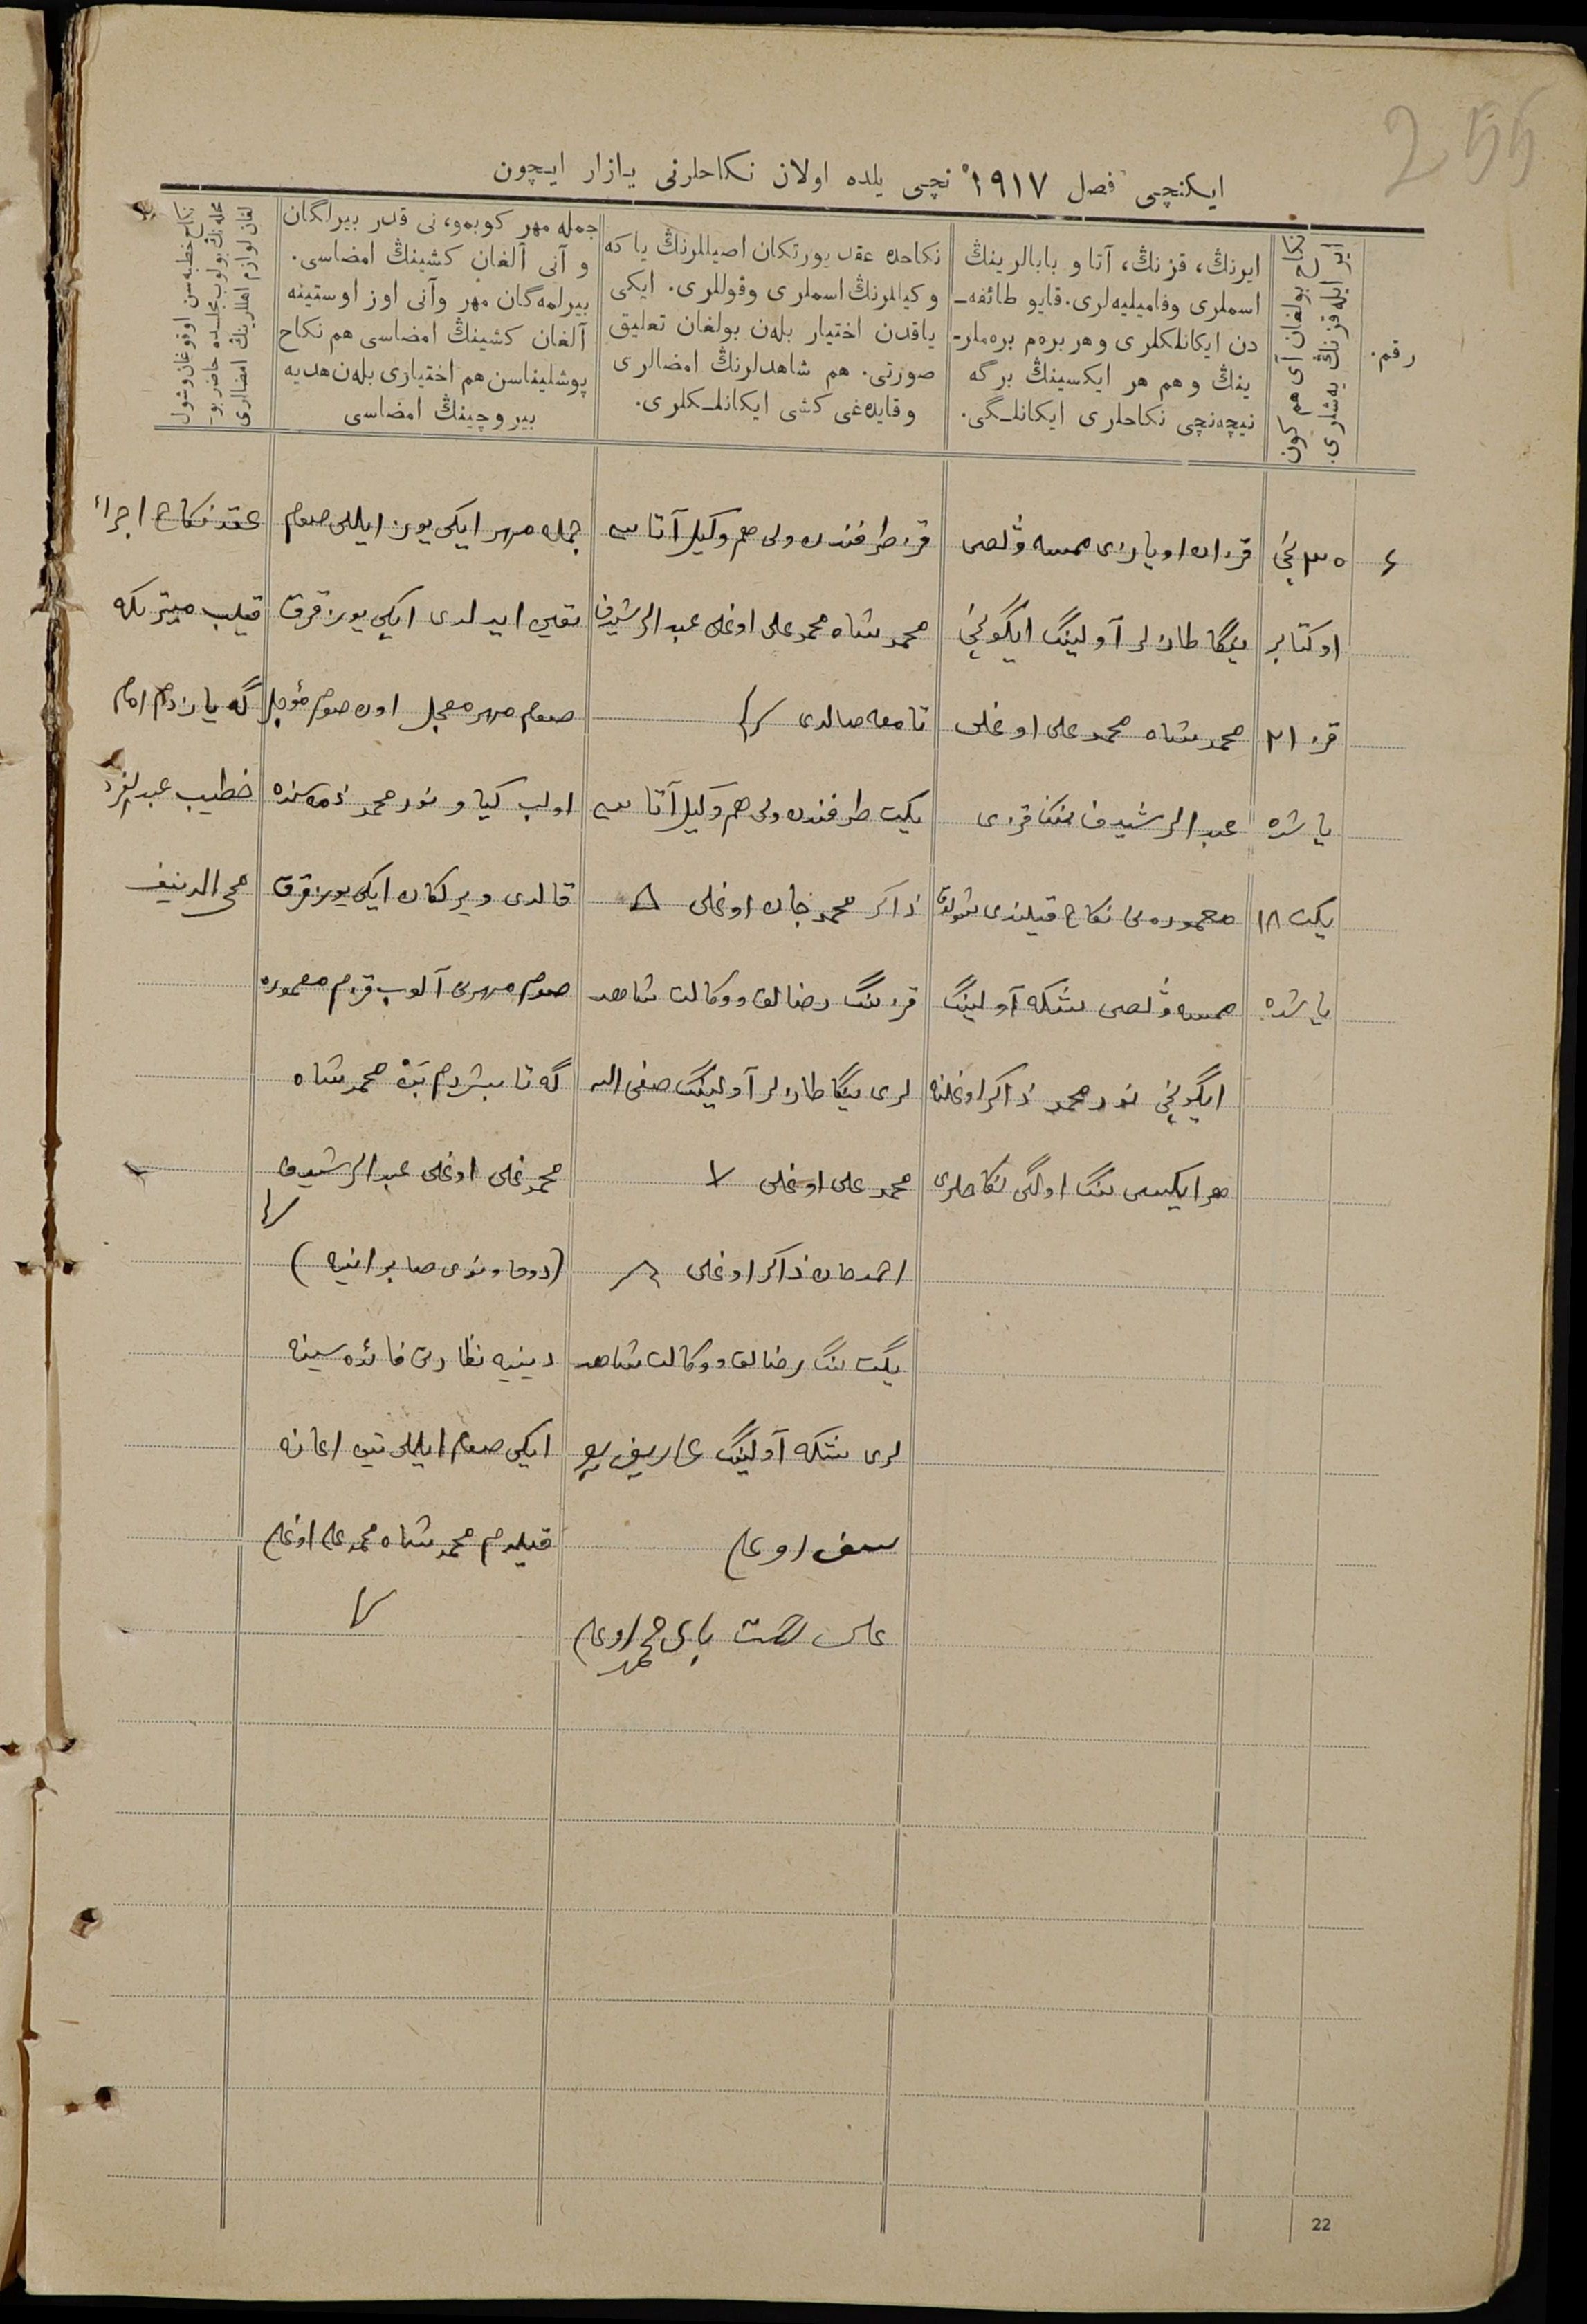 255
ایکنچی فصل ۱۹۱۷ نچی یلده اولان نکاحلرنی یازار ایچون
رقم.
نکاح بولغان آی هم کون
ایر ایله قزنڭ یه‌شلری.
ایرنڭ، قزنڭ، آتا و بابالرینڭ
اسملری وفامیلیه‌لری. قایو طائفه‌ـ
دن ایکانلکلری و هر بره‌م بره‌ملرـ
ینڭ و هم هر ایکسینڭ برگه
نیچه‌نچی نکاحلری ایکانلـگی.
نکاحده عقد یورتکان اصیللرنڭ یا که
و کیللرنڭ اسملری وقوللری. ایکی
یاقدن اختیار بله‌ن بولغان تعلیق
صورتی. هم شاهدلرنڭ امضالری
وقایده‌غی کشی ایکانلـکلری.
جمله مهر کوبمو، نی قدر بیرلگان
و آنی آلغان کشینڭ امضاسی.
بیرلمه‌گان مهر وآنی اوز اوستینه
آلغان کشینڭ امضاسی هم نکاح
پوشلیناسن هم اختیاری بله‌ن هدیه
بیر وچینڭ امضاسی
نکاح خطبه‌سن اوقوغان وشول
محله‌نڭ بولوب مجلسده حاضر بوـ
لغان لوازم اهللرینڭ امضالری
۶
۳۰ نچی
اوکتابر
قز ۲۱
یاشده
یکت ۱۸
یاشده
قزان اویازی همسه وُلصی
ینگا طازلر آولینگ ایگونچی
محمدشاه محمدعلی اوغلی
عبدالرشیدف ننگ قزی
معموره‌نی نکاح قیلندی شولوق
همسه وُلصی آولینگ
ایگونچی نورمحمد ذاکر اوغلنه
هر ایکیسی ننگ اولگی نکاحلری
قز طرفندن ولی هم وکیل آتاسی
محمدشاه محمدعلی اوغلی عبدالرشیدف
تامغه صالدی
یکت طرفندن ولی هم وکیل آتاسی
ذاکر محمدجان اوغلی
قزننگ رضالق و وکالت شاهد
لری ینگا طازلر آولینگ صفی الله
محمدعلی اوغلی
احمدجان ذاکر اوغلی
یگت ننگ رضالق و وکالت شاهد
لری آولینگ
اوغلی
محمد اوغلی
جمله مهر ایکی یوز ایللی صوم
تعیین ایدلدی ایکی یوز قرق
صوم مهر معجل اون صوم مؤجل
اولب کیاو نورمحمد ذمه‌سنده
قالدی ویرلکان ایکی یوز قرق
صوم مهرنی آلوب قزم معموره
گه تابشردم محمدشاه
محمدعلی اوغلی عبدالرشیدف
(دوحاونوی صابرانیه)
دینیه نظارتی فائده‌سینه
ایکی صوم ایللی تین اعانه
قیلدم محمدشاه محمدعلی اوغلی
عقد نکاح اجراء
قیلب میتریکه
گه یازدم امام
خطیب
محی الدینف
22